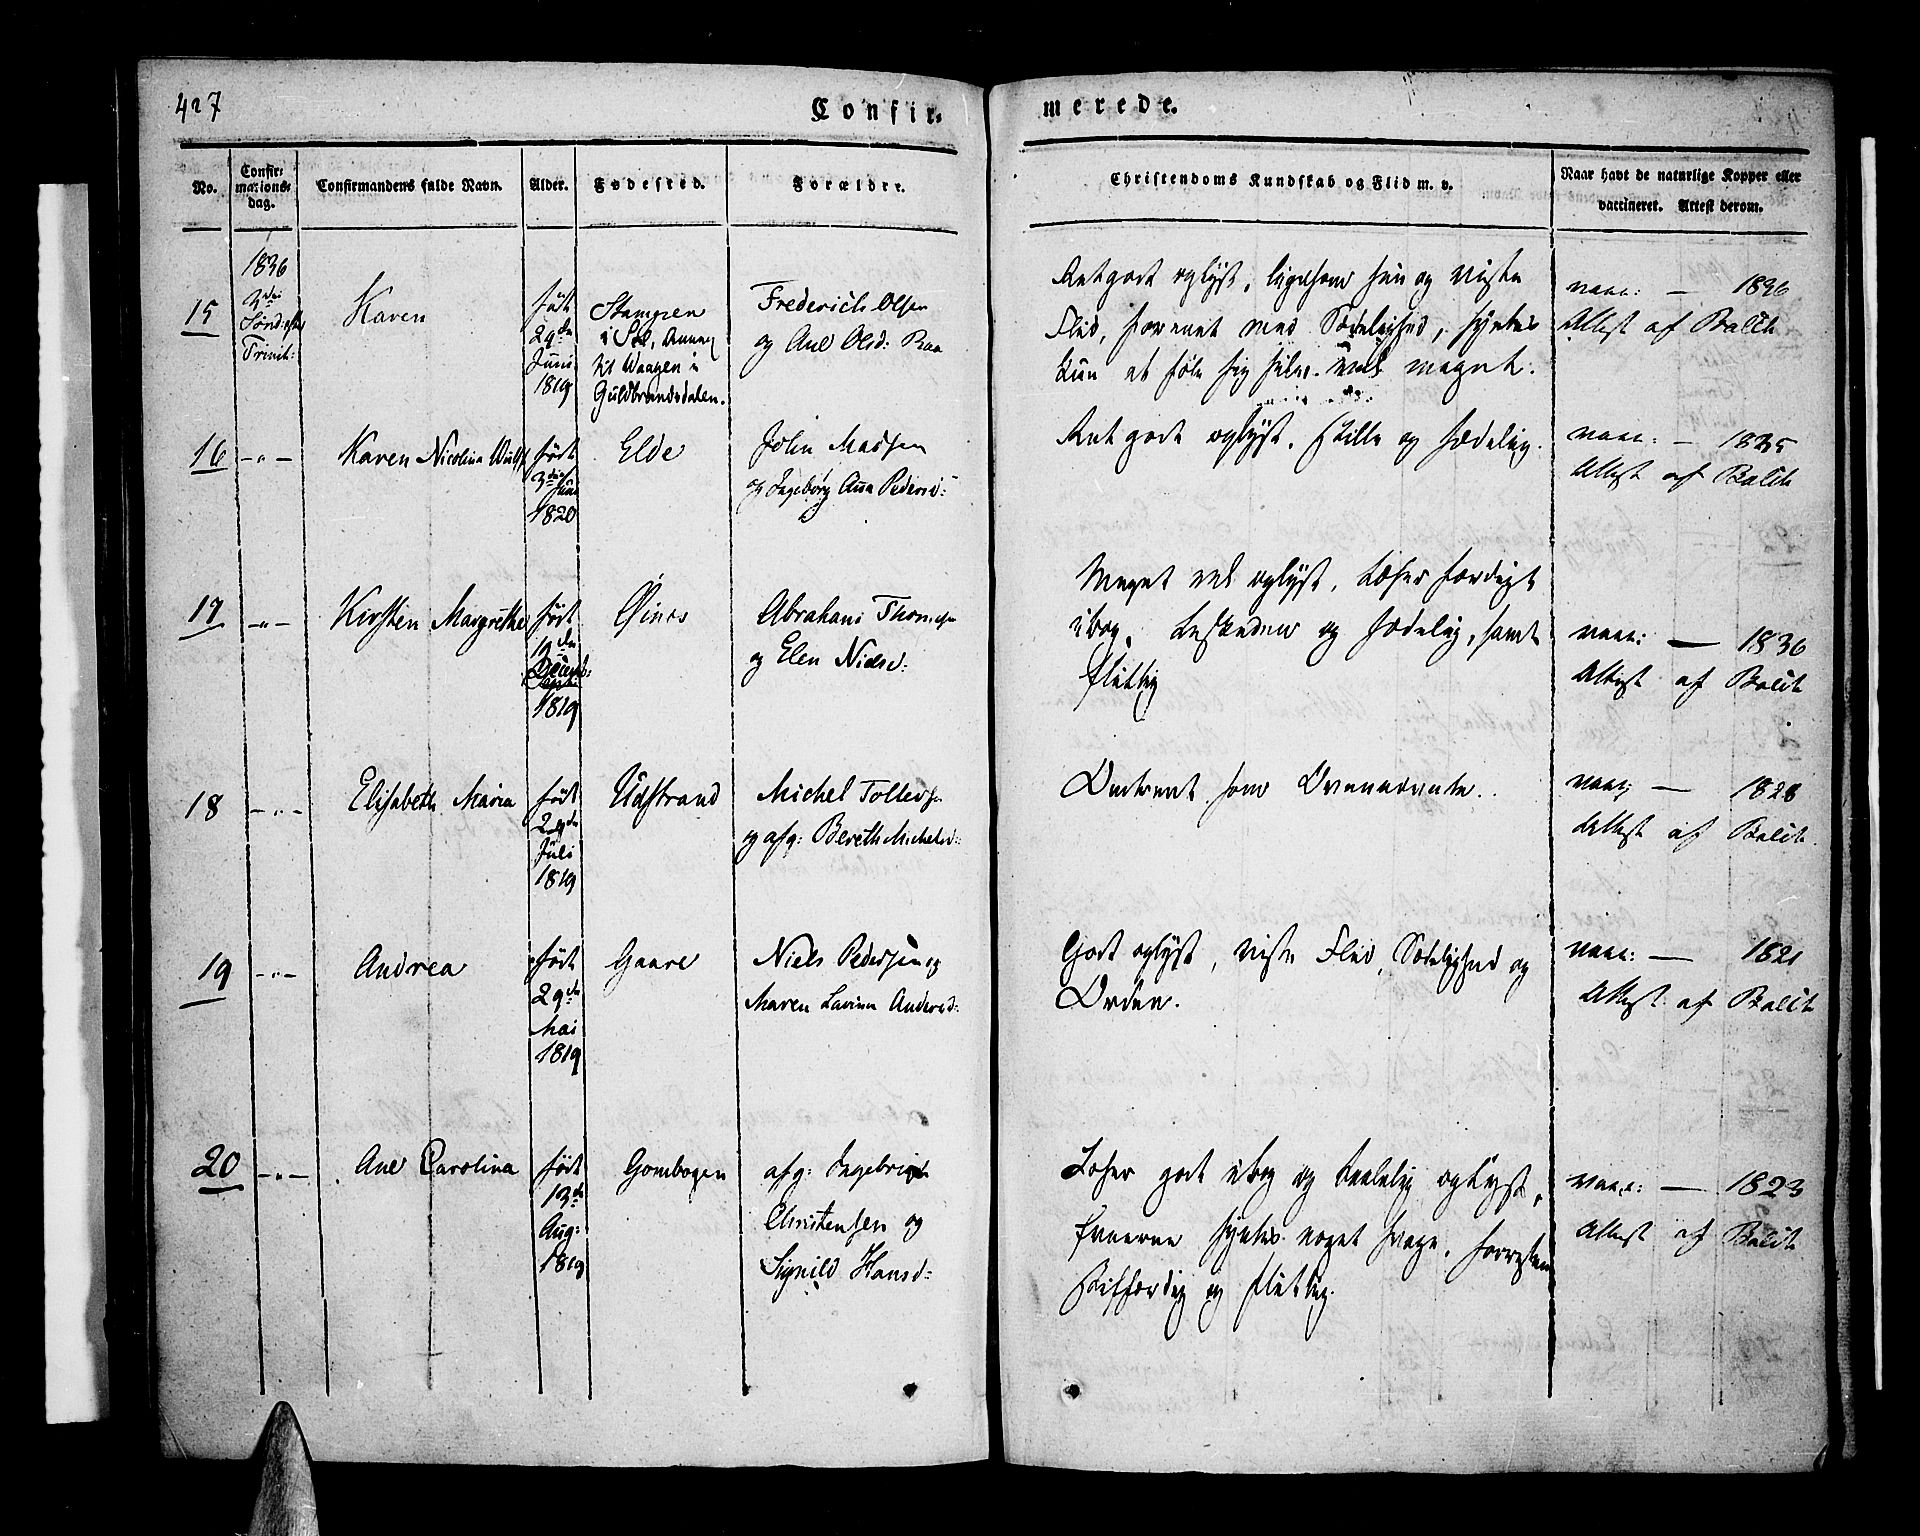 427
Confir-
merede.
No.
Confir-
mations-
dag.
Confirmandens fulde Navn.
Alder.
Fødested.
Forældre.
Christendoms Kundskab og Flid m. v.
Naar havt de naturlige Kopper eller
vaccineret. Attest derom.
15
1836
3die
Sønd: efter
Trinit:
Karen
født
29de
Juni
1819
Stampen
i Guldbrandsdalen.
Frederich Olsen
og Ane Olsd:
Ret godt oplyst, ligesom hun og viste
Flid, forenet med Sædelighed, syntes
kun at føle sig selv meget.
vacc: — 1836
Attest af Balch
16 -"-
Karen Nicolina
født
3die
Juni
1820
Elde
John Madsen
og Ingeborg Anna Pedersd:
Ret godt oplyst, stille og sædelig.
vacc: — 1835
Attest af Balch
17 -"-
Kirsten Margrethe
født
Decemb:
1819
Øines
Abraham Thomesen
og Elen Nielsd:
Meget vel oplyst, læser færdigt
i bog, beskeden og sædelig, samt
flittig
vacc: — 1836
Attest af Balch
18 -"-
Elisabeth Maria
født
29de
Juli
1819
Udstrand
Michel Tollefsen
og afg: Bereth Michelsd:
Omtrent som Ovennævnte.
vacc: — 1828
Attest af Balch
19 -"-
Andrea
født
29de
Mai
1819
Gaare
Niels Pedersen og
Maren Lavina Andersd:
Godt oplyst, viste Flid, Sædelighed og
Orden.
vacc: — 1821
Attest af Balch
20 -"-
Ane Carolina
født
13de
Aug:
1819
Gombogen
afg: Ingebrigt
Christensen og
Signild Hansd:
Læser godt i bog og taalelig oplyst,
Evnerne syntes noget svage, forresten
skikkerlig og flittig.
vacc: — 1823
Attest af Balch